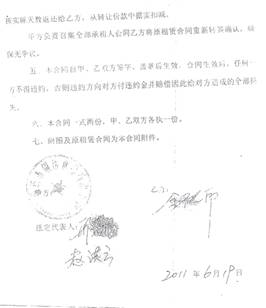 按实际天数返还给乙方，从转让价款中据实扣减。
甲方负责召集全部承租人会同乙方将原租赁合同重新转签确认，确
保无争议。
五、本合同自甲、乙双方签字、盖章后生效，合同生效后，任何一
方不得违约，否则违约方向对方付违约金并赔偿因此给对方造成的全部损
失。
六、本合同一式两份，甲、乙双方各执一份。
七、附图及原租赁合同为本合同附件。
甲方
乙方：
法定代表人：
2011年6月19日